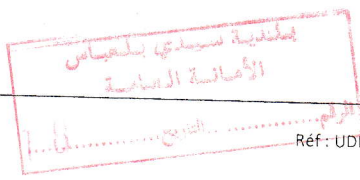 بلدية سيدي بلعباس
الأمانة العامة
الرقم ............ التاريخ ............
Réf : UD